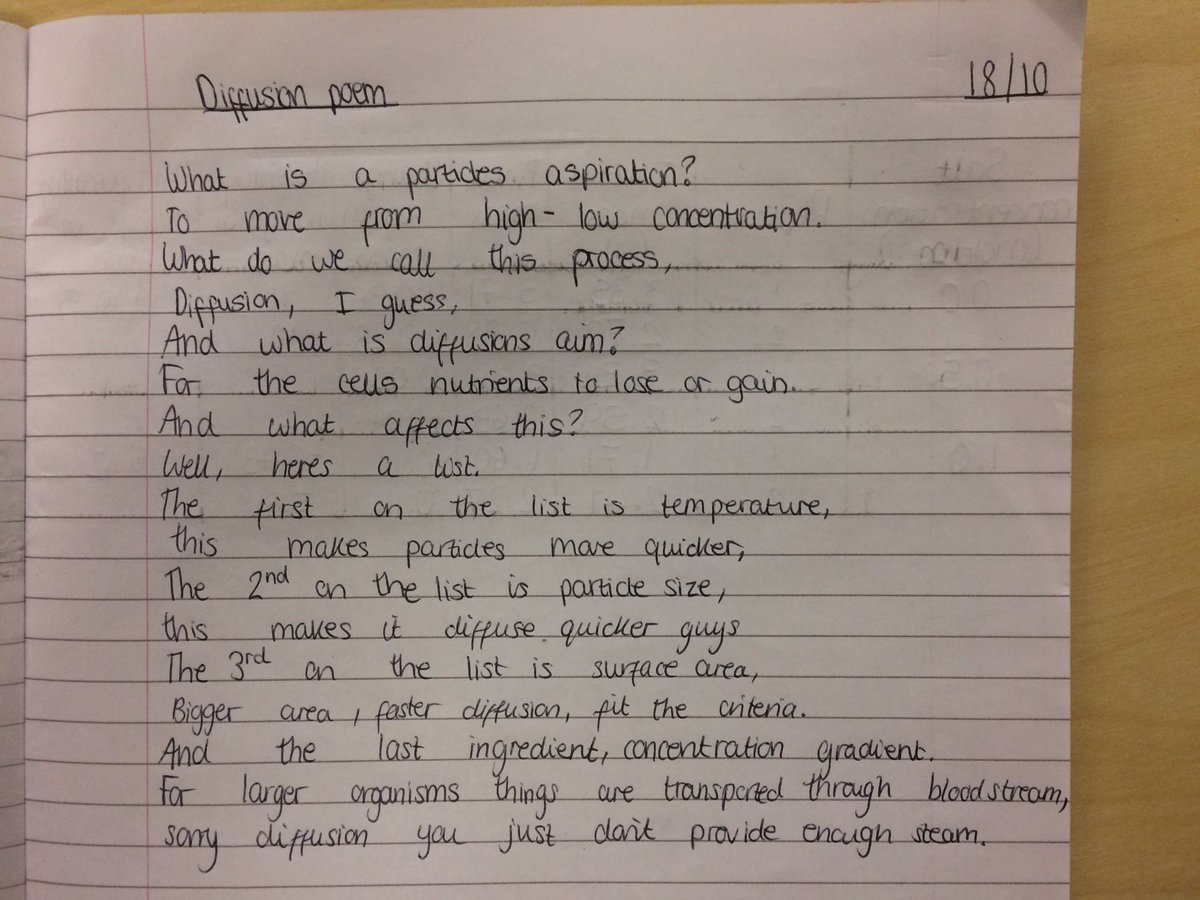 Diffusion poem 18/10
What is a particles aspiration?
To move from high-low concentration.
What do we call this process,
Diffusion, I guess,
And what is diffusions aim?
For the cells nutrients to lose or gain.
And what affects this?
Well, heres a list.
The first on the list is temperature,
this makes particles move quicker,
The 2nd on the list is particle size,
this makes it diffuse quicker guys
The 3rd on the list is surface area,
Bigger area, faster diffusion, fit the criteria.
And the last ingredient, concentration gradient.
For larger organisms things are transported through bloodstream,
sorry diffusion you just don't provide enough steam.